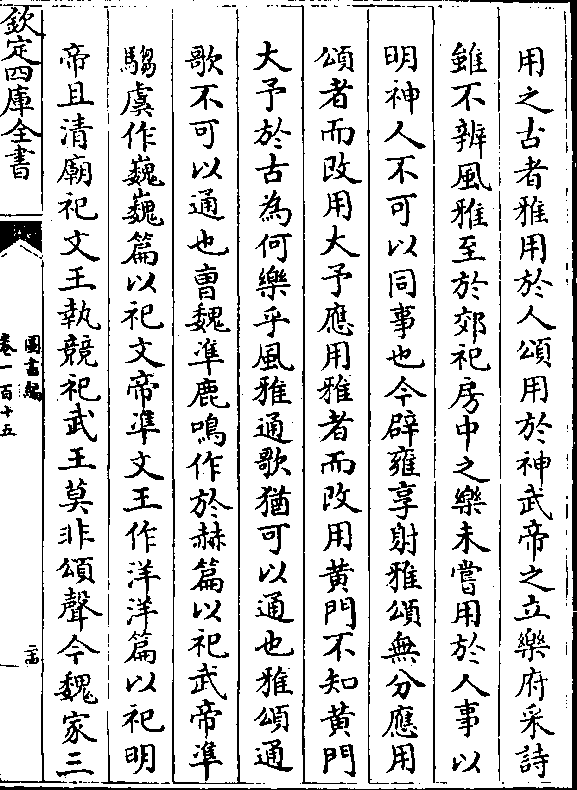 用之古者雅用於人頌用於神武帝之立樂府采詩
雖不辨風雅至於郊祀房中之樂未嘗用於人事以
明神人不可以同事也今辟雍享射雅頌無分應用
頌者而改用大予應用雅者而改用黄門不知黄門
大予於古為何樂乎風雅通歌猶可以通也雅頌通
歌不可以通也曹魏準鹿鳴作於赫篇以祀武帝準
騶虞作巍巍篇以祀文帝準文王作洋洋篇以祀明
帝且清廟祀文王執競祀武王莫非頌聲今魏家三
欽定四庫全書
圖書編
卷一百十五